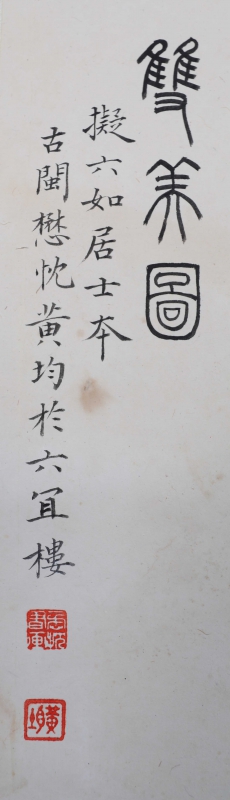 雙美圖
擬六如居士本
古閩懋忱黃均於六宜樓
黃均